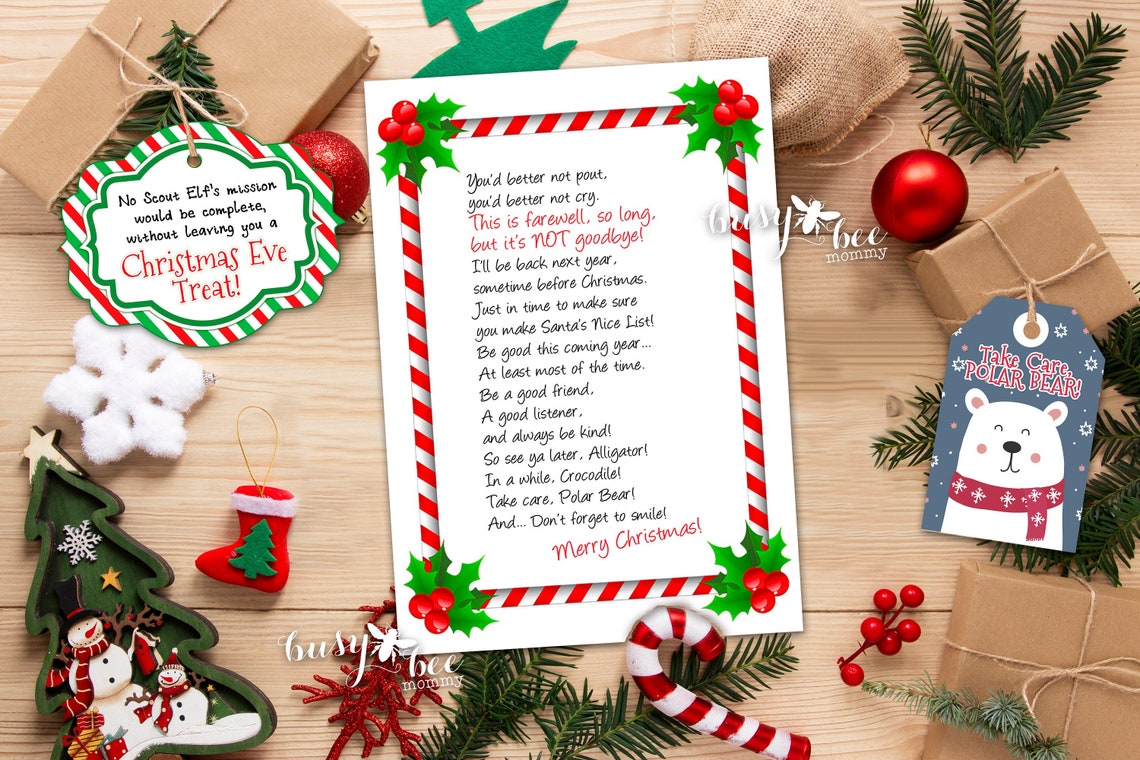 No Scout Elf's mission
would be complete,
without leaving you a
Christmas Eve
Treat!
You'd better not pout,
you'd better not cry.
This is farewell, so long,
but it's NOT goodbye!
I'll be back next year,
sometime before Christmas.
Just in time to make sure
you make Santa's Nice List!
Be good this coming year...
At least most of the time.
Be a good friend,
A good listener,
and always be kind!
So see ya later, Alligator!
In a while, Crocodile!
Take care, Polar Bear!
And... Don't forget to smile!
Merry Christmas!
busy bee
mommy
Take Care,
POLAR BEAR!
busy bee
mommy